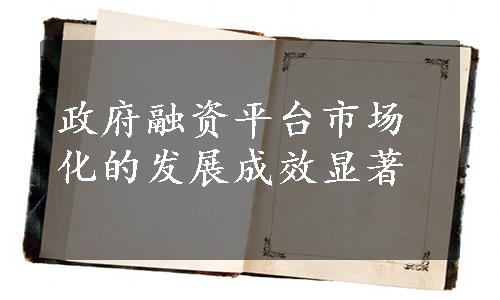 政府融资平台市场
化的发展成效显著